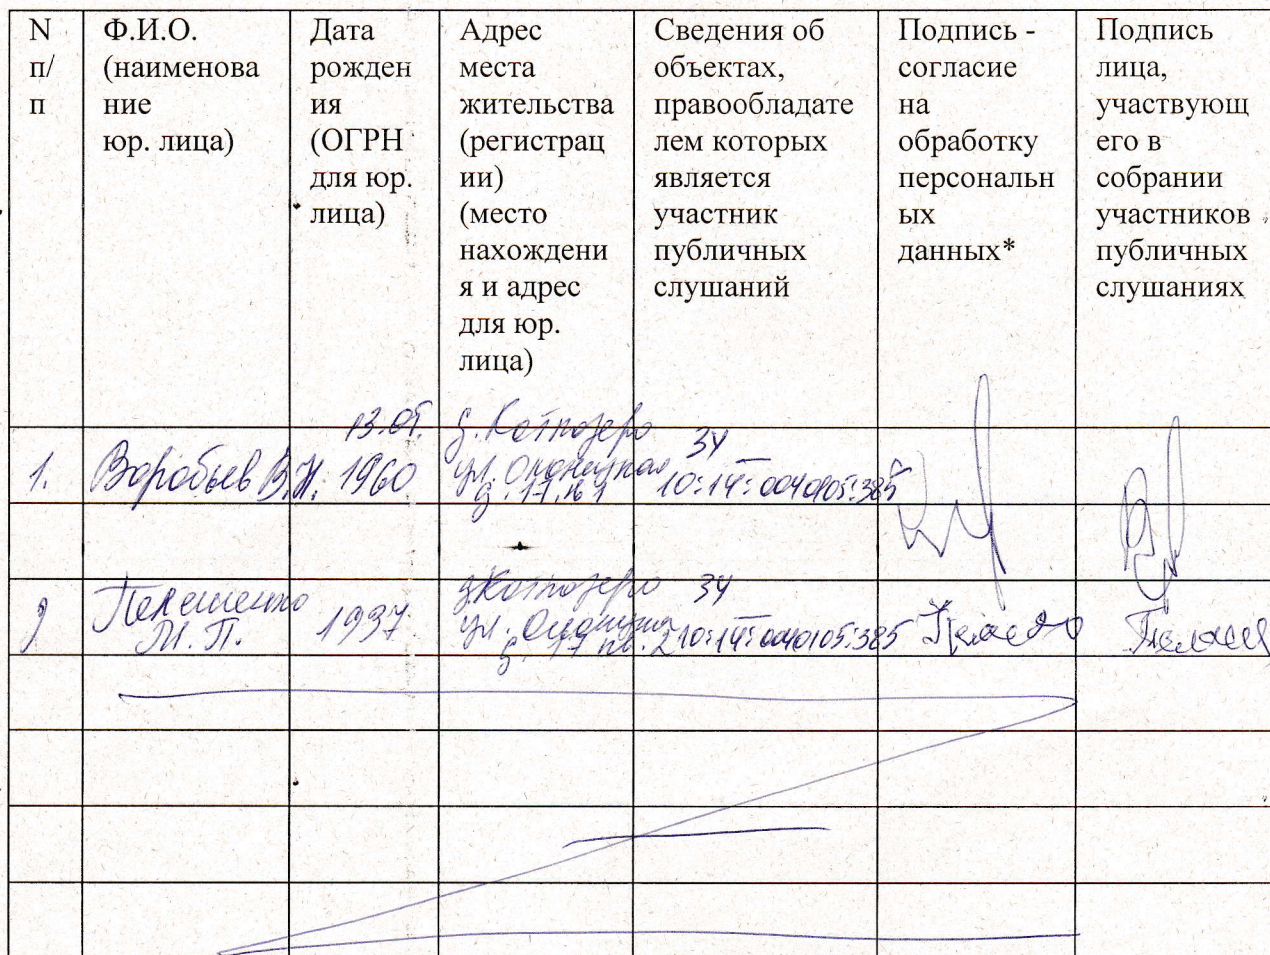 N
п/
п
Ф.И.О.
(наименова
ние
юр. лица)
Дата
рожден
ия
(ОГРН
для юр.
лица)
Адрес
места
жительства
(регистрац
ии)
(место
нахождени
я и адрес
для юр.
лица)
Сведения об
объектах,
правообладате
лем которых
является
участник
публичных
слушаний
Подпись -
согласие
на
обработку
персональн
ых
данных*
Подпись
лица,
участвующ
его в
собрании
участников
публичных
слушаниях
1.
Воробьев В.Н.
13.01.
1960
д. Коткозеро
ул. Олонецкая
д. 17, кв 1
ЗУ
10:14:0040105:385
2
М. П.
1937
д Коткозеро
ул. Олонецкая
д. 17 кв. 2
ЗУ
10:14:0040105:385